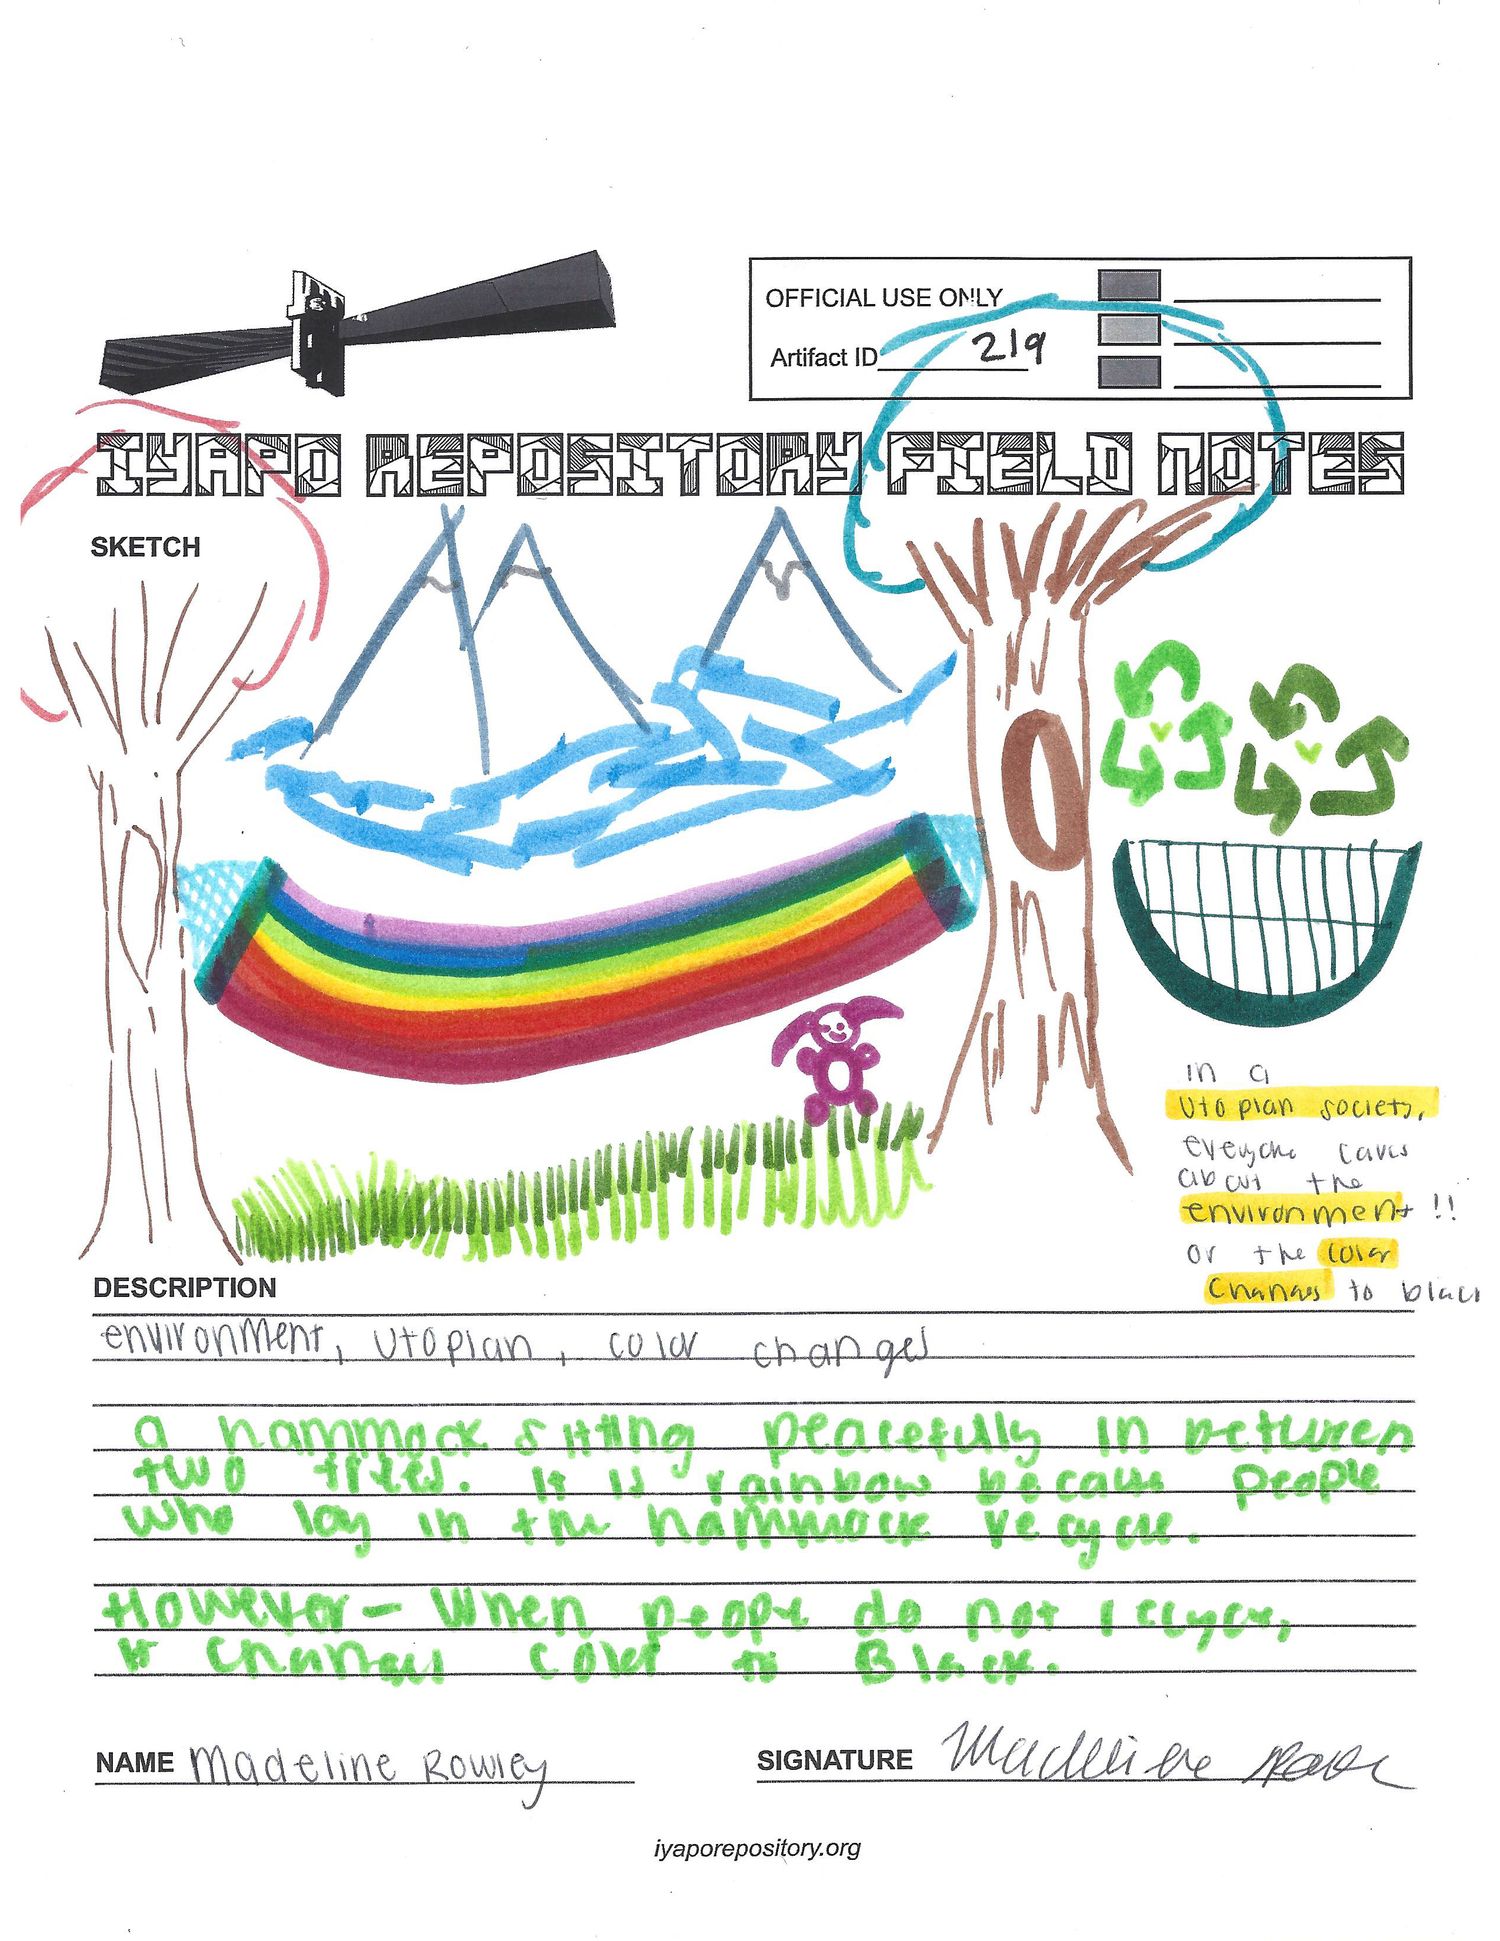 OFFICIAL USE ONLY
Artifact ID 219
IYAPO REPOSITORY FIELD NOTES
SKETCH
in a
utopian society,
everyone cares
about the
environment!!
or the color
changes to black
DESCRIPTION
environment, utopian, color changes
a hammock sitting peacefully in between
two trees. it is rainbow because people
who lay in the hammock recycle.
However- when people do not recycle,
it changes color to Black.
NAME Madeline Rowley
SIGNATURE Madeline
iyaporepository.org